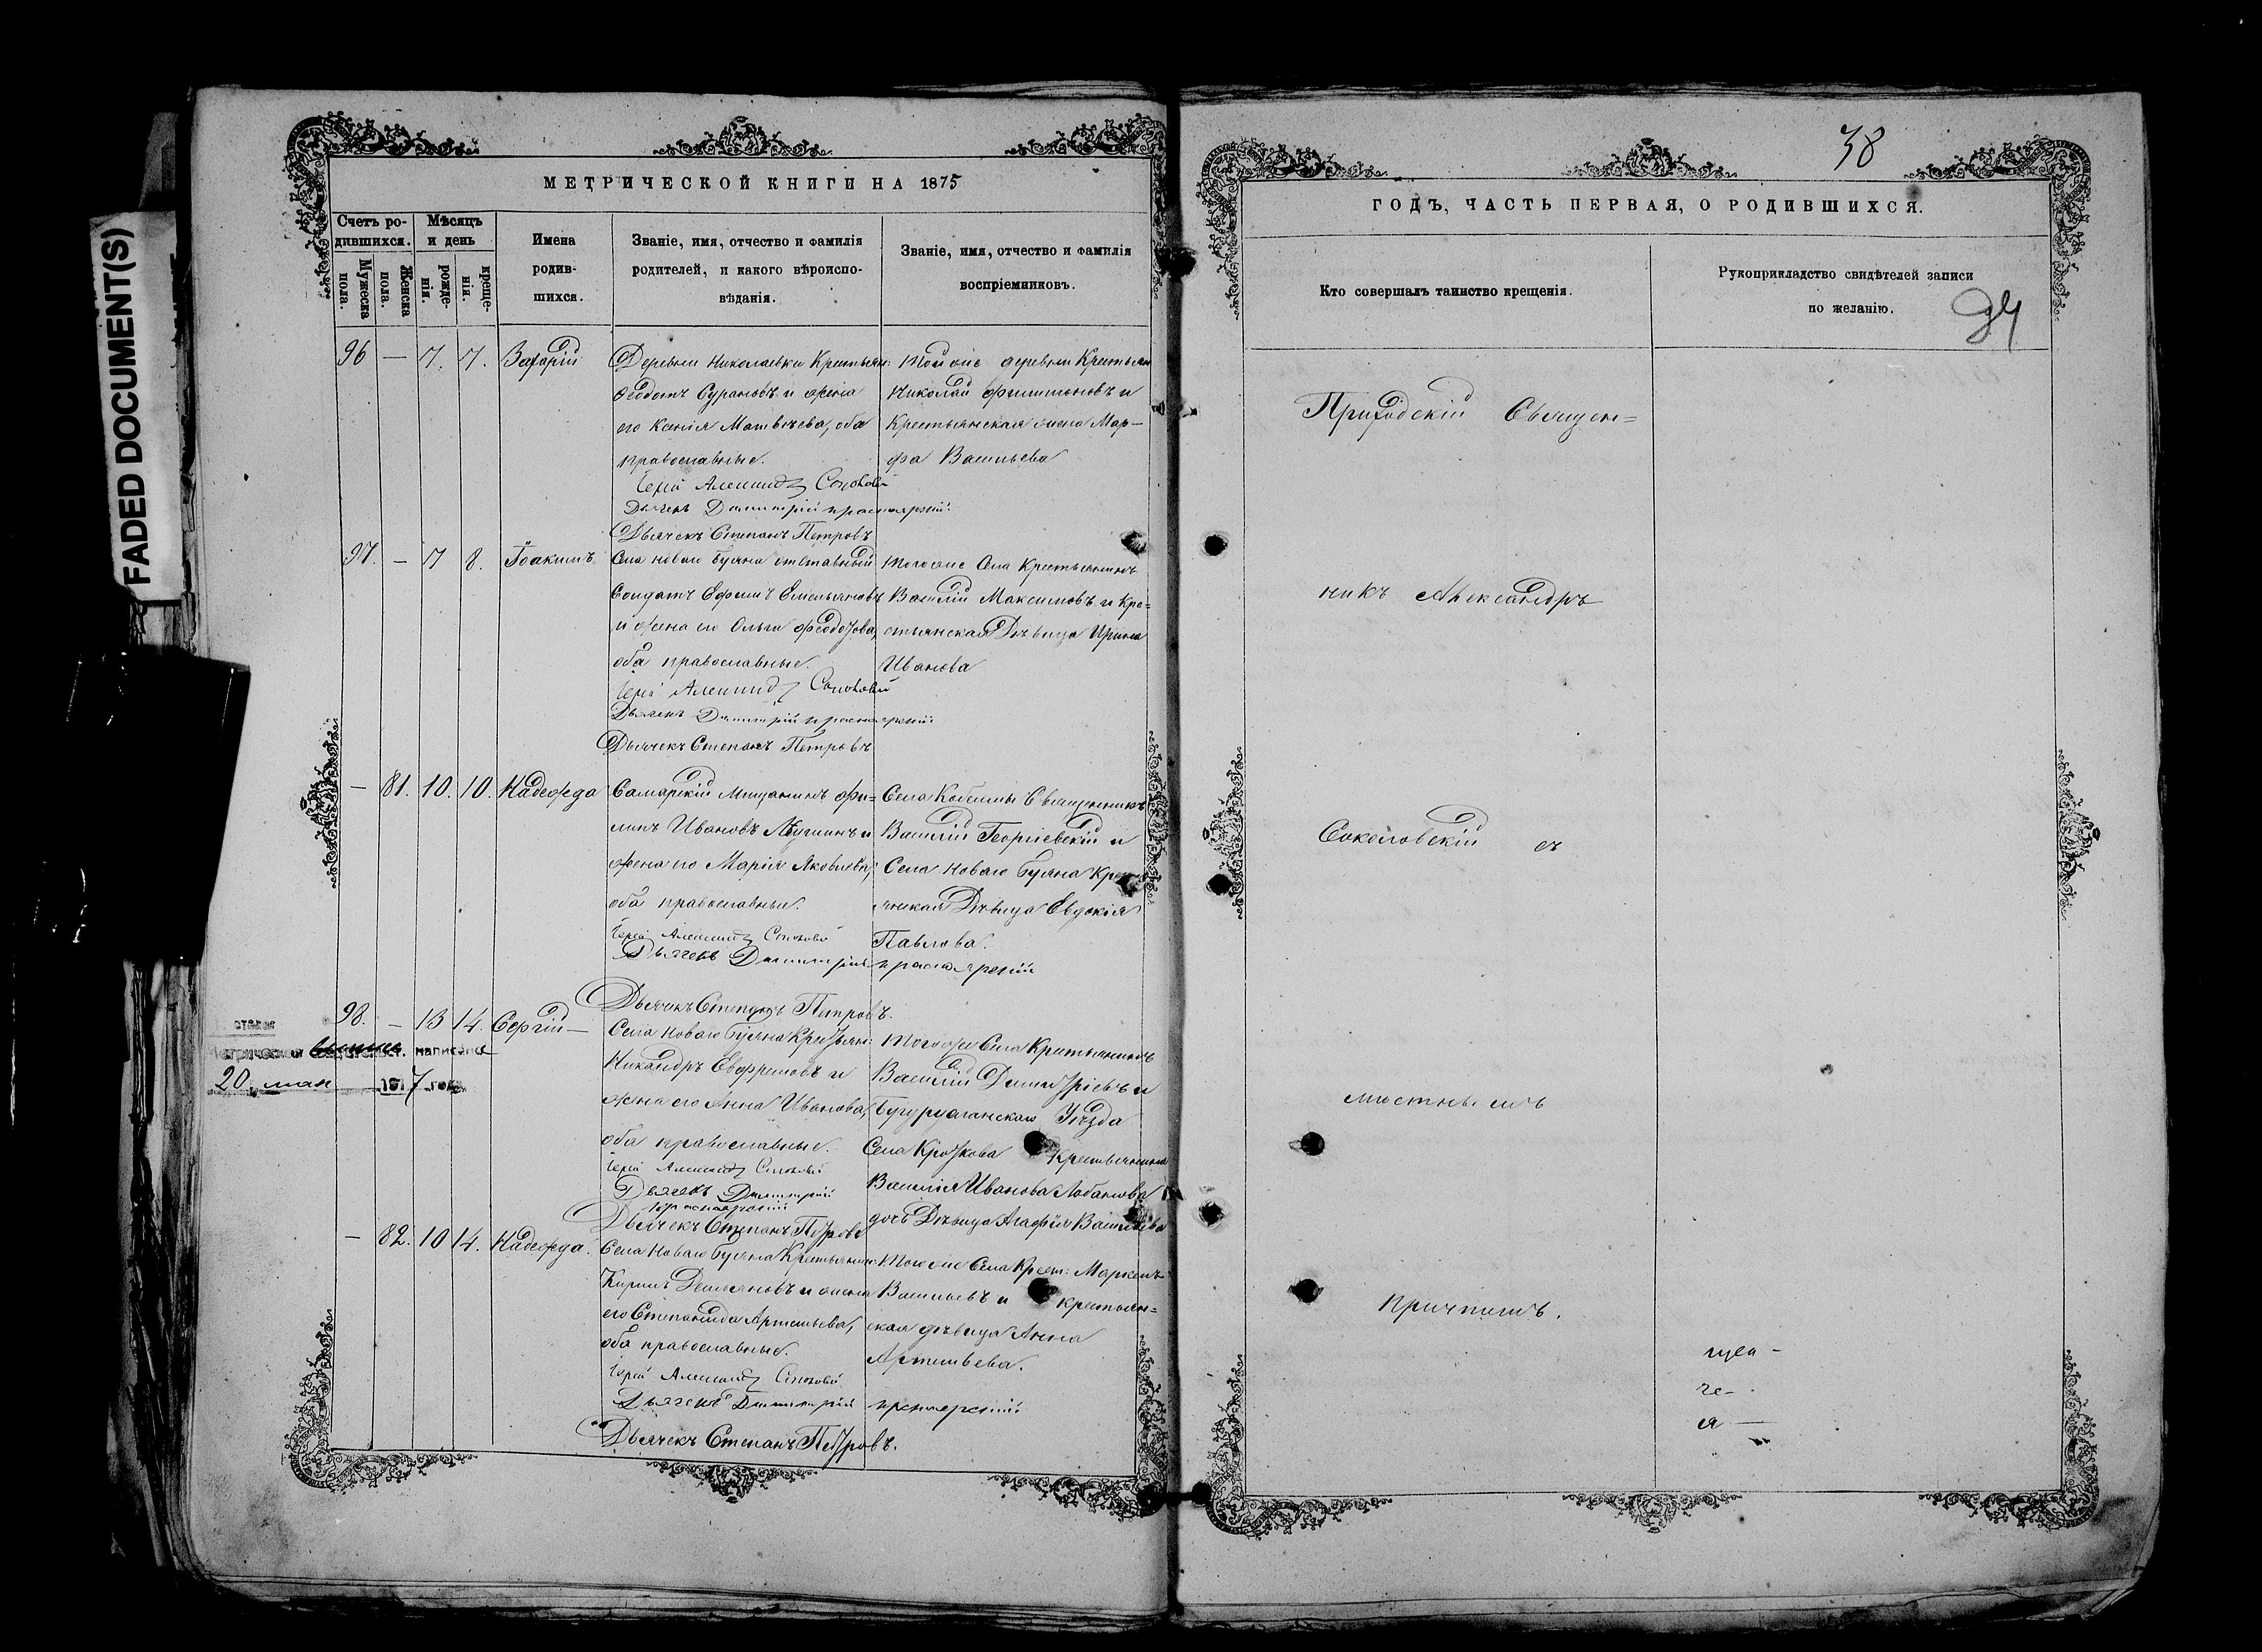 FADED DOCUMENT(S)
МЕТРИЧЕСКОЙ КНИГИ НА 1875
Счетъ ро-
дившихся.
Мужеска пола.
Женска пола.
Мѣсяцъ
и день
рожде-
нія.
креще-
нія.
Имена
родив-
шихся.
Званіе, имя, отчество и фамилія
родителей, и какого вѣроиспо-
вѣданія.
Званіе, имя, отчество и фамилія
воспріемниковъ.
96 — 7. 7. Захарій
Деревни Николаевки Крестьян:
Ѳедотъ Сурановъ и жена
его Ксенія Матвѣева, оба
православные.
Іерей Александръ
Дьячекъ Димитрій Красноярскій
Дьячекъ Степанъ Петровъ
Той же деревни Крестьян
Николай Филимоновъ и
Крестьянская жена Мар-
фа Васильева
97. — 7 8. Іоакимъ
Села Новаго Буяна отставный
Солдатъ Ефимъ Емельяновъ
и жена его Ольга Ѳедорова,
оба православные.
Іерей Александръ
Дьячекъ Димитрій Красноярскій
Дьячекъ Степанъ Петровъ
Того же Села Крестьянинъ
Василій Максимовъ и Кре=
стьянская Дѣвица Ирина
Иванова
— 81. 10. 10. Надежда
Самарскій Мещанинъ Фи=
липъ Ивановъ и
жена его Марія Яковлева,
оба православные.
Іерей Александръ
Дьячекъ Димитрій Красноярскій
Дьячекъ Степанъ Петровъ.
Села Кобельмы Священникъ
Василій Георгіевскій и
Села Новаго Буяна Крест
янская Дѣвица Евдокія
Павлова.
98. — 13 14. Сергій —
20 мая 1917 года
Села Новаго Буяна Крестьян:
Никандръ Евфремовъ и
жена его Анна Иванова,
оба православные.
Іерей Александръ
Дьячекъ Димитрій
Красноярскій
Дьячекъ Степанъ Петровъ
Того же Села Крестьянинъ
Василій Димитріевъ и
Бугурусланскаго Уѣзда
Села Кроткова Крестьянина
Василія Иванова Лобанова
дочь Дѣвица Агафія Васильева
— 82. 10 14. Надежда.
Села Новаго Буяна Крестьянин:
Кирилъ Демьяновъ и жена
его Степанида Артемьева,
оба православные.
Іерей Александръ
Дьячекъ Димитрій Красноярскій
Дьячекъ Степанъ Петровъ.
Того же Села Крест: Маркелъ
Васильевъ и крестьян=
ская дѣвица Анна
Артемьева.
38
ГОДЪ, ЧАСТЬ ПЕРВАЯ, О РОДИВШИХСЯ.
Кто совершалъ таинство крещенія.
Рукоприкладство свидѣтелей записи
по желанію.
Приходскій Священ=
никъ Александръ
Соколовскій съ
мѣстнымъ
причтомъ.